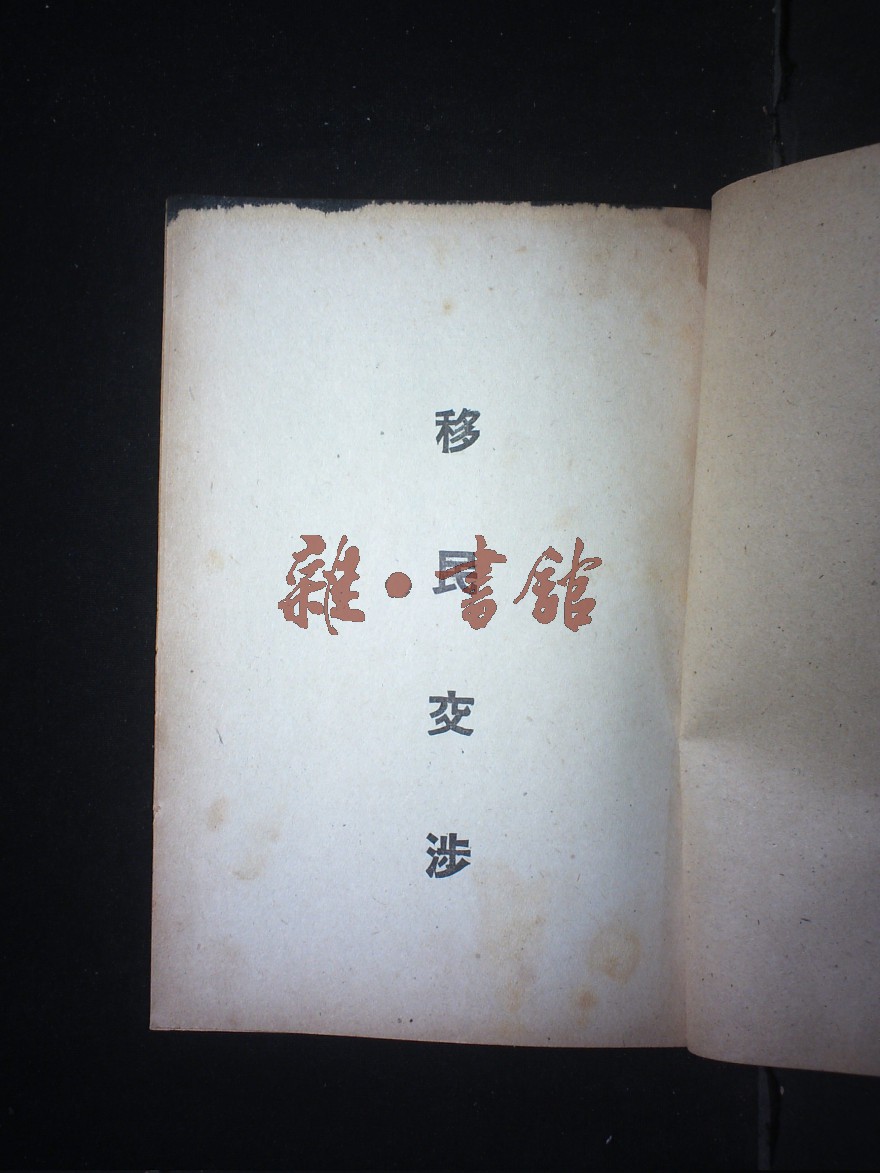 移民交涉
雜·書館